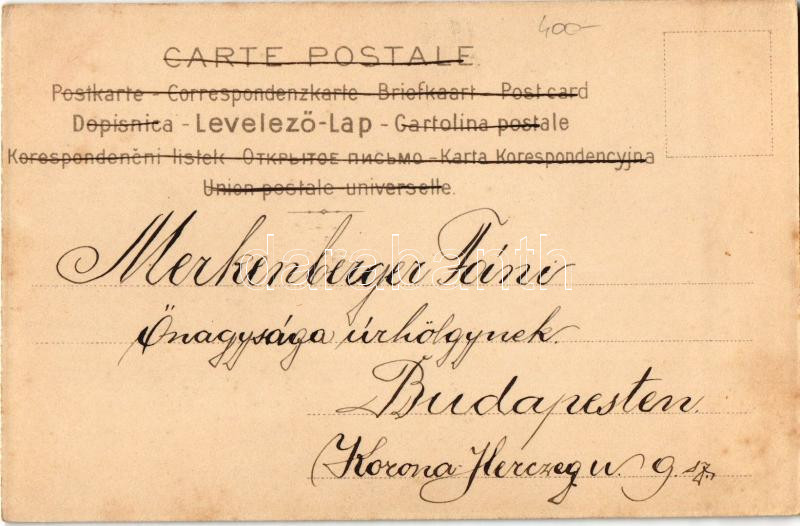 400-
CARTE POSTALE
Postkarte - Correspondenzkarte - Briefkaart - Post card
Dopisnica - Levelező-Lap - Cartolina postale
Korespondenční listek - Открытое письмо - Karta Korespondencyjna
Union postale universelle.
Merkenberger Fáni
Őnagysága úrhölgynek.
Budapesten.
Korona Herczeg u. 9. sz.
darabanth